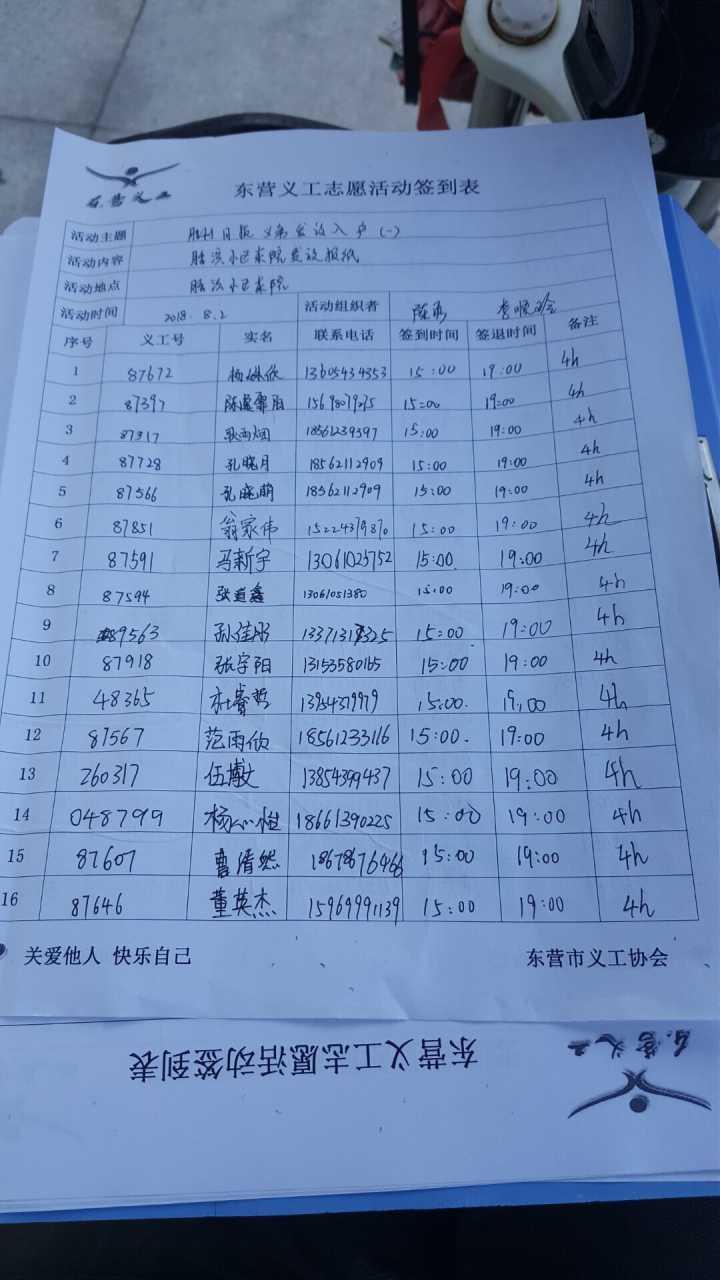 东营义工
东营义工志愿活动签到表
活动主题 胜利日报义务发放入户(一)
活动内容 胜滨小区东院发放报纸
活动地点 胜滨小区东院
活动时间 2018.8.2 活动组织者
序号 义工号 实名 联系电话 签到时间 签退时间 备注
1 87672 13605434353 15:00 19:00 4h
2 87397 15:00 19:00 4h
3 87317 耿雨烟 18561239397 15:00 19:00 4h
4 87728 孔晓月 18562112909 15:00 19:00 4h
5 87566 孔晓萌 18562112909 15:00 19:00 4h
6 87851 翁家伟 15224379870 15:00 19:00 4h
7 87591 马新宇 13061025752 15:00 19:00 4h
8 87594 张道鑫 13061051380 15:00 19:00 4h
9 89563 孙佳彤 15:00 19:00 4h
10 87918 张宇阳 13153580165 15:00 19:00 4h
11 48365 杜睿哲 13954379979 15:00. 19:00 4h
12 87567 范雨欣 18561233116 15:00. 19:00 4h
13 260317 伍博文 13854399437 15:00 19:00 4h
14 048799 杨心怡 18661390225 15:00 19:00 4h
15 87607 曹清然 18678676466 15:00 19:00 4h
16 87646 董英杰 15969991139 15:00 19:00 4h
关爱他人 快乐自己 东营市义工协会
东营义工志愿活动签到表
东营义工